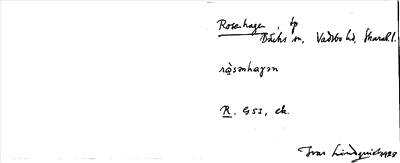 Rosenhagen, tp
Bäcks sn, Vadsbo hd, Skarab. l.
rò̤sənhaɣən
R. GSI, ek.
Ivar Lindquist 1923